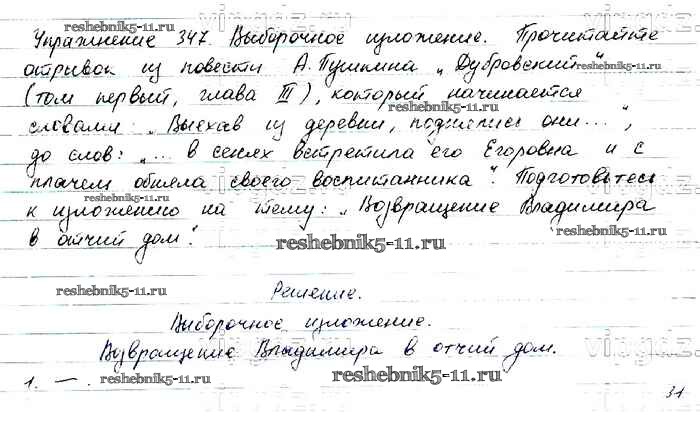 reshebnik5-11.ru
Упражнение 347. Выборочное изложение. Прочитайте
отрывок из повести А. Пушкина „Дубровский“ reshebnik5-11.ru
(том первый, глава III), который начинается
reshebnik5-11.ru
словами: „Выехав из деревни, поднялись они...“,
до слов: „... в сенях встретила его Егоровна и с
плачем обняла своего воспитанника“. Подготовьтесь
к изложению на тему: „Возвращение Владимира
в отчий дом“. reshebnik5-11.ru reshebnik5-11.ru
reshebnik5-11.ru Решение.
Выборочное изложение.
Возвращение Владимира в отчий дом.
1. —. reshebnik5-11.ru reshebnik5-11.ru
31